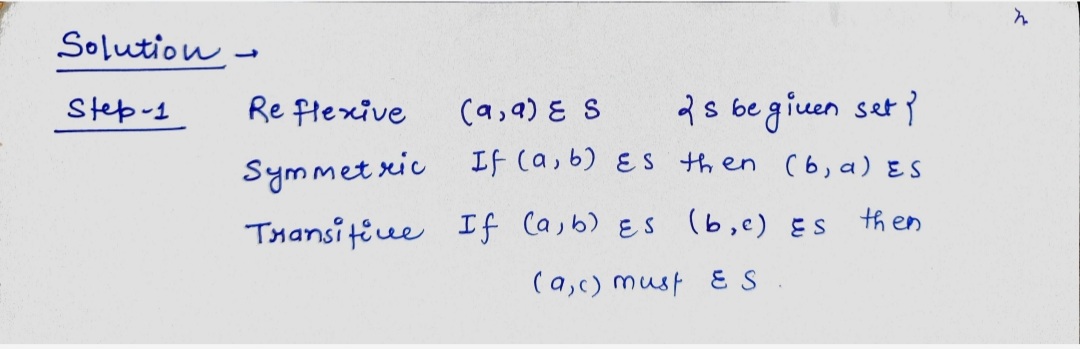 Solution →
Step-1 Reflexive (a,a) ε S {s be given set}
Symmetric If (a,b) ε S then (b,a) ε S
Transitive If (a,b) ε S (b,c) ε S then
(a,c) must ε S.